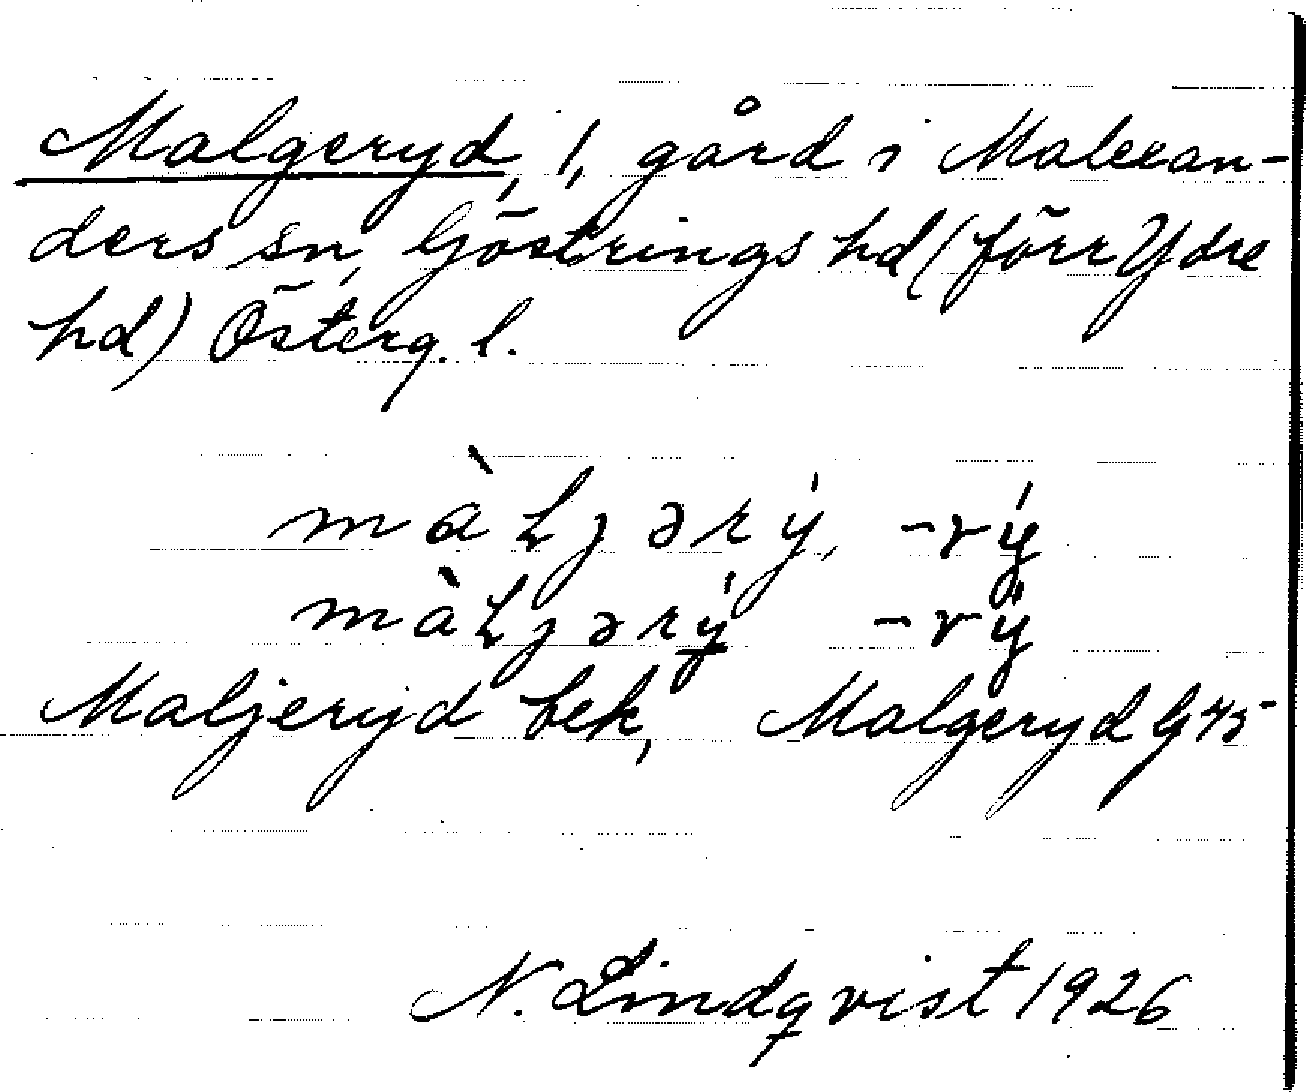 Malgeryd, 1, gård i Malexan-
ders sn, Göstrings hd (förr Ydre
hd) Österg. l.
màLjərý, -rý
màLjərý -rý
Maljeryd bek, Malgeryd G 45
N. Lindqvist 1926